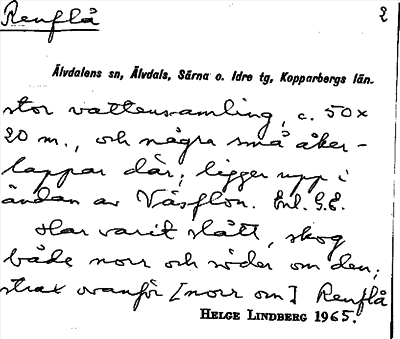 Renflå 2
Älvdalens sn, Älvdals, Särna o. Idre tg, Kopparbergs län.
stor vattensamling, c. 50 x
20 m., och några små åker-
lappar där; ligger upp i
ändan av Våsflon. Enl. G.E.
Har varit slått, skog
både norr och söder om den;
strax ovanför [norr om] Renflå
HELGE LINDBERG 1965.